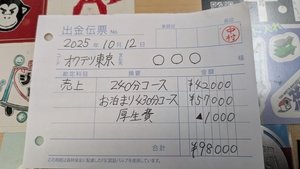 出金伝票 No.
承認印
係印
中村
2025年10月12日
オクテツ東京 ○○○ 様
勘定科目 摘要 金額
売上 240分コース ¥42000
お泊まり430分コース ¥57000
厚生費 ▲1000
¥98000